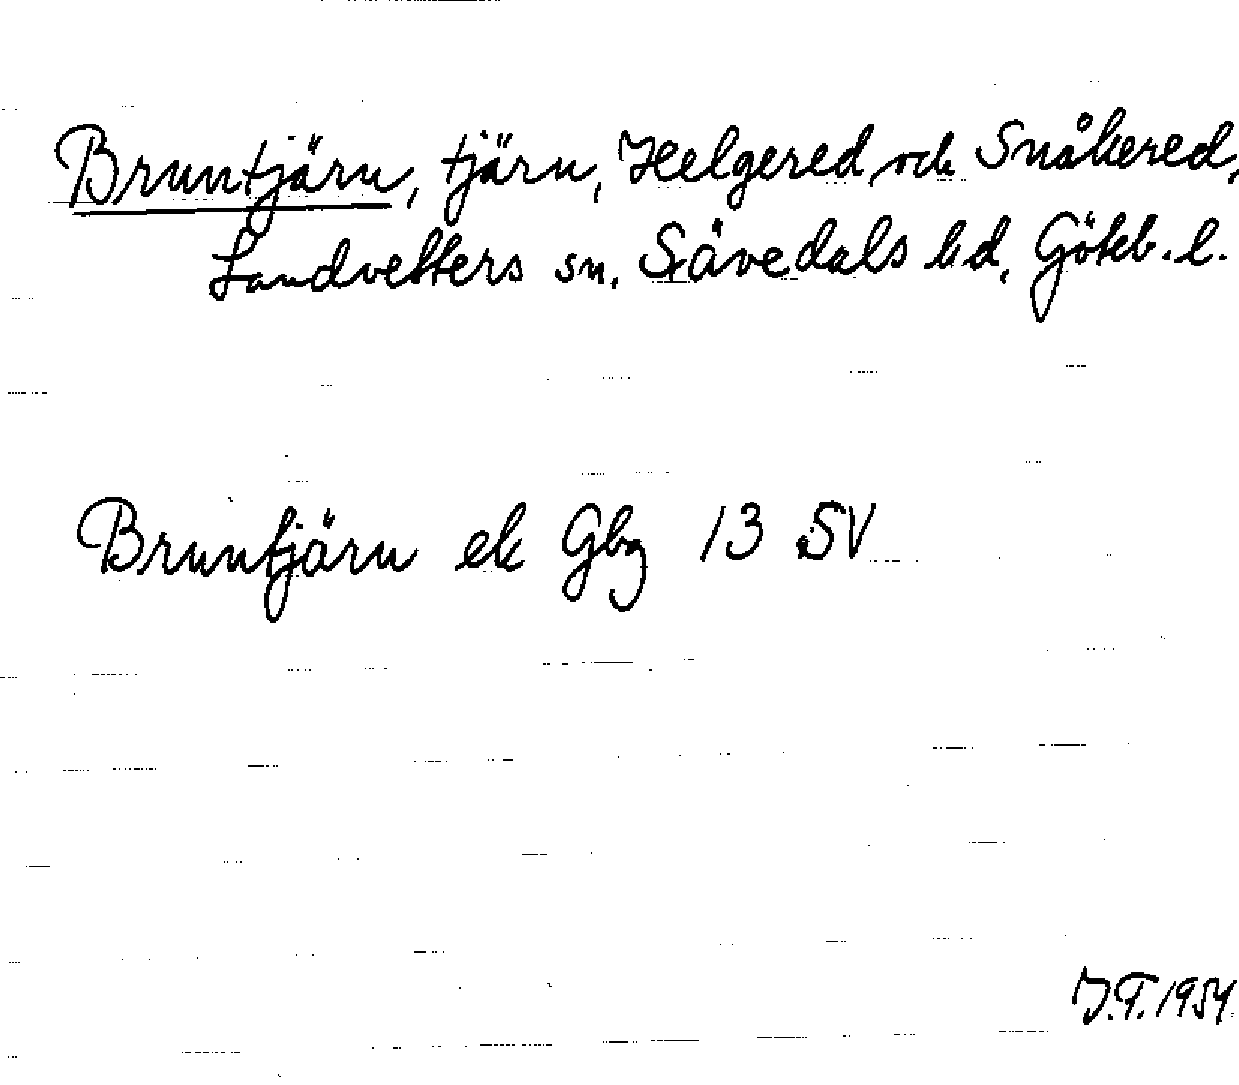 Bruntjärn, tjärn, Helgered och Snåkered,
Landvetters sn, Sävedals hd, Göteb. l.
Bruntjärn ek Gbg 13 SV
J.T. 1954